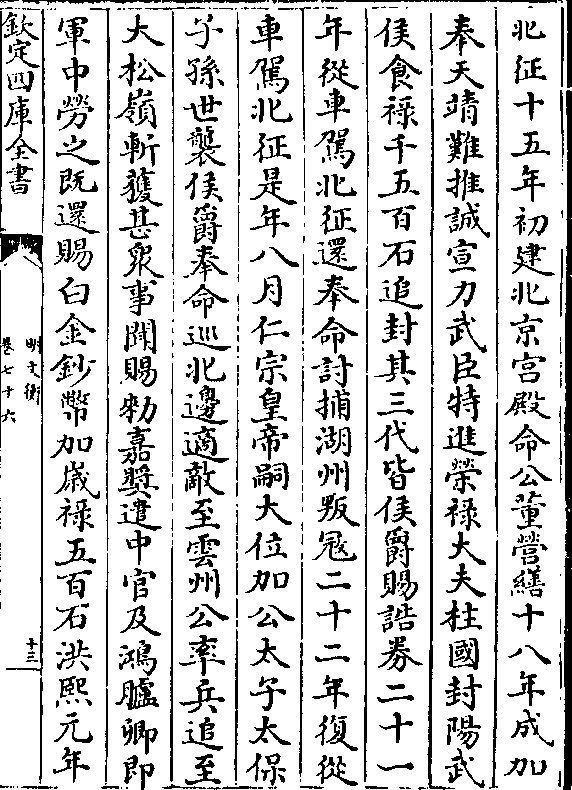 北征十五年初建北京宫殿命公董營繕十八年成加
奉天靖難推誠宣力武臣特進榮祿大夫柱國封陽武
侯食祿千五百石追封其三代皆侯爵賜誥券二十一
年從車駕北征還奉命討捕湖州叛冦二十二年復從
車駕北征是年八月仁宗皇帝嗣大位加公太子太保
子孫世襲侯爵奉命巡北邊適敵至雲州公率兵追至
大松嶺斬獲甚衆事聞賜勑嘉奬遣中官及鴻臚卿即
軍中勞之既還賜白金鈔幣加歲祿五百石洪熙元年
欽定四庫全書
明文衡
卷七十六
十三